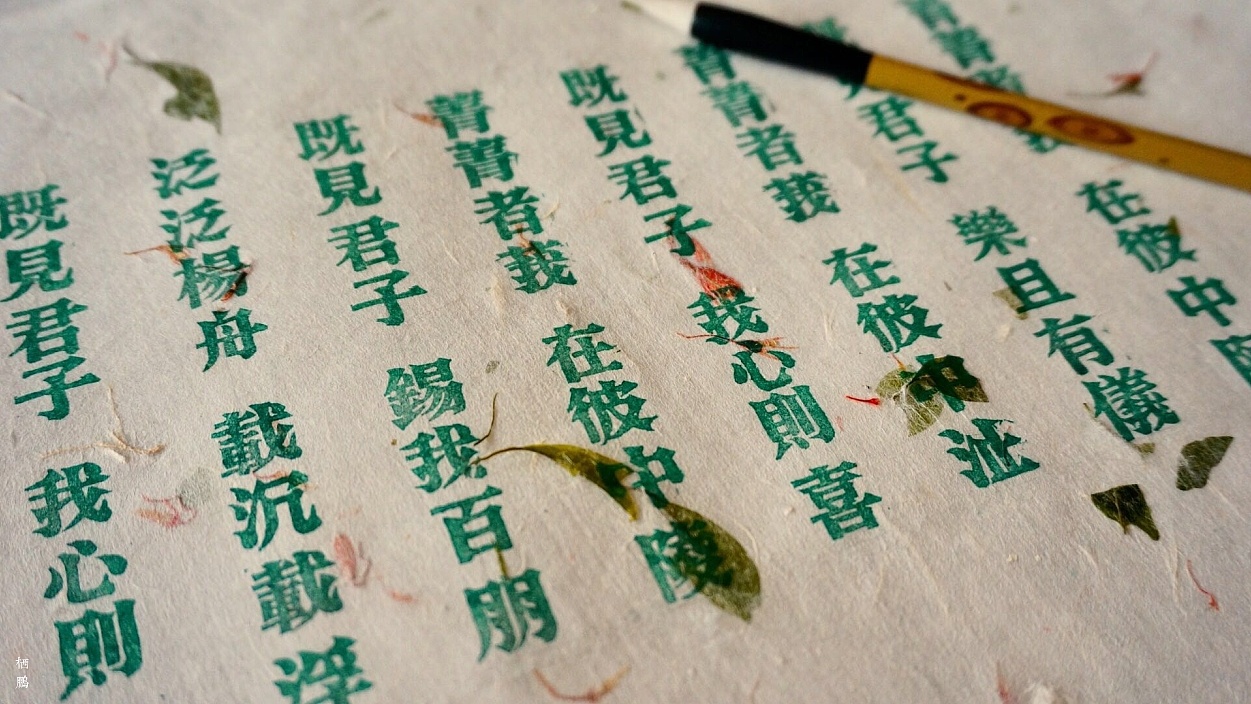 菁菁 在彼中
君子 樂且有儀
菁菁者莪 在彼中沚
既見君子 我心則喜
菁菁者莪 在彼中陵
既見君子 錫我百朋
泛泛楊舟 載沉載浮
既見君子 我心則
栖鵬